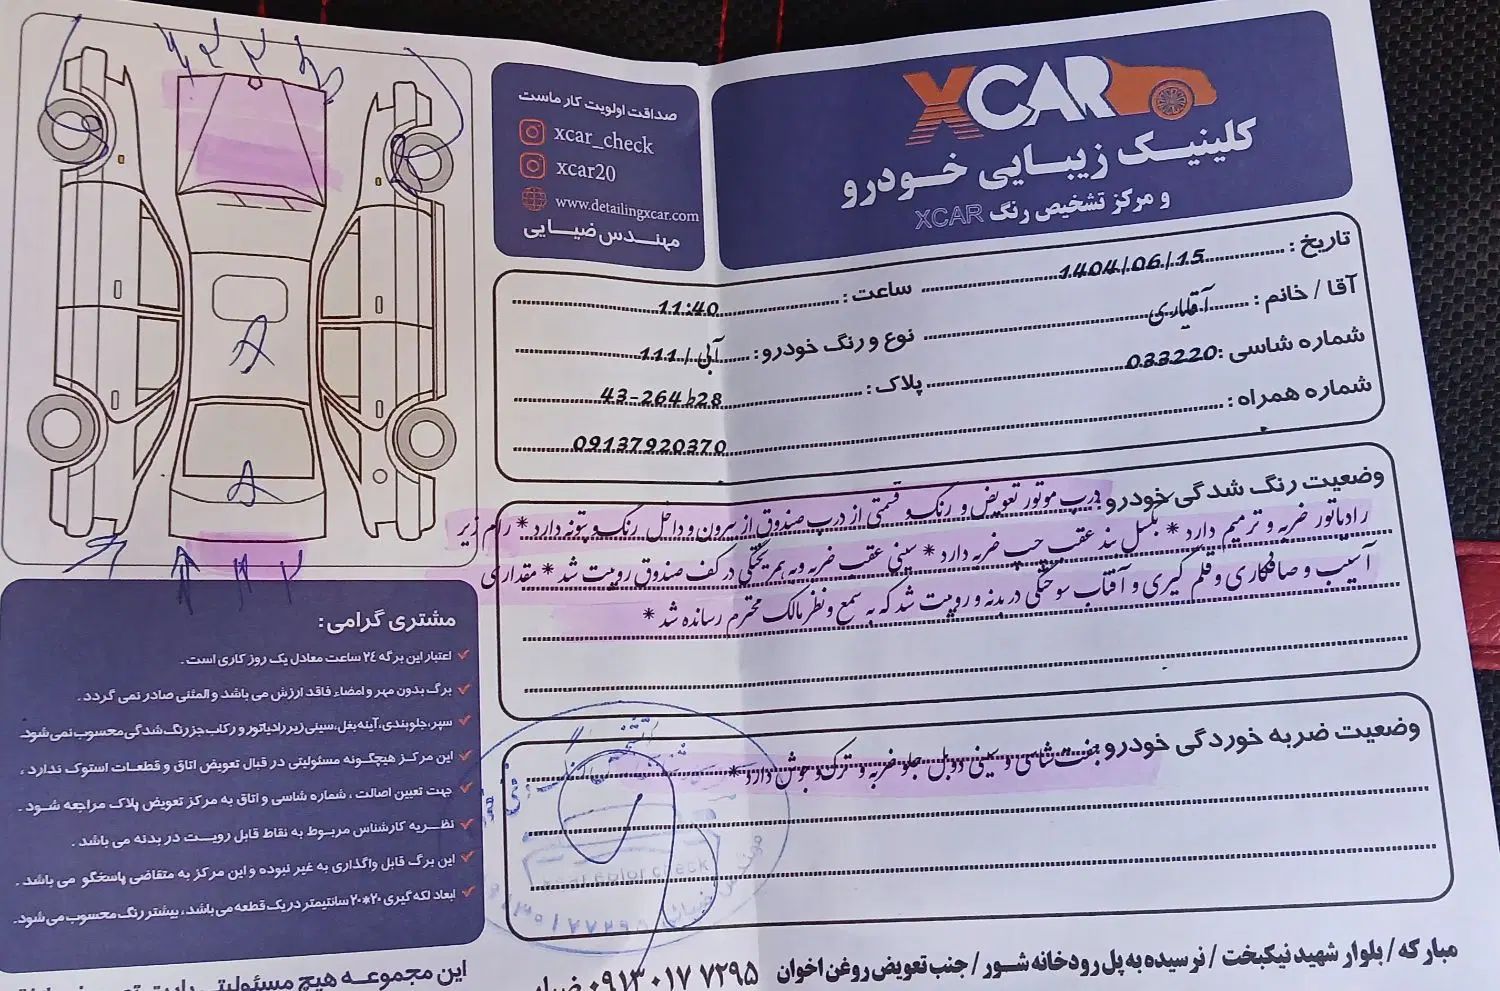 XCAR
کلینیک زیبایی خودرو
و مرکز تشخیص رنگ XCAR
صداقت اولویت کار ماست
xcar_check
xcar20
www.detailingxcar.com
مهندس ضیایی
تاریخ : 1404/06/15 ساعت : 11:40
آقا / خانم : آقایاری نوع و رنگ خودرو : آبی / 111
شماره شاسی : 033220 پلاک : 28ط264-43
شماره همراه : 09137920370
وضعیت رنگ شدگی خودرو : درب موتور تعویض و رنگ و قسمتی از درب صندوق از بیرون و داخل رنگ و بتونه دارد * رام زیر
رادیاتور ضربه و ترمیم دارد * بکسل بند عقب چپ ضربه دارد * سینی عقب ضربه و به همریختگی در کف صندوق رویت شد * مقداری
آسیب و صافکاری و قلم گیری و آفتاب سوختگی در بدنه و رویت شد که به سمع و نظر مالک محترم رسانده شد *
وضعیت ضربه خوردگی خودرو : جفت شاسی و سینی دوبل جلو ضربه و ترک و جوش دارد *
real color check
مشتری گرامی :
اعتبار این برگه ٢٤ ساعت معادل یک روز کاری است .
برگ بدون مهر و امضاء فاقد ارزش می باشد و المثنی صادر نمی گردد .
سپر، جلوبندی، آینه بغل، سینی زیر رادیاتور و رکاب جز رنگ شدگی محسوب نمی شود.
این مرکز هیچگونه مسئولیتی در قبال تعویض اتاق و قطعات استوک ندارد .
جهت تعیین اصالت ، شماره شاسی و اتاق به مرکز تعویض پلاک مراجعه شود .
نظریه کارشناس مربوط به نقاط قابل رویت در بدنه می باشد .
این برگ قابل واگذاری به غیر نبوده و این مرکز به متقاضی پاسخگو می باشد .
ابعاد لکه گیری ٢٠*٢٠ سانتیمتر در یک قطعه می باشد، بیشتر رنگ محسوب می شود.
مبارکه / بلوار شهید نیکبخت / نرسیده به پل رودخانه شور / جنب تعویض روغن اخوان ۰۹۱۳ ۰۱۷ ۷۲۹۵
این مجموعه هیچ مسئولیتی